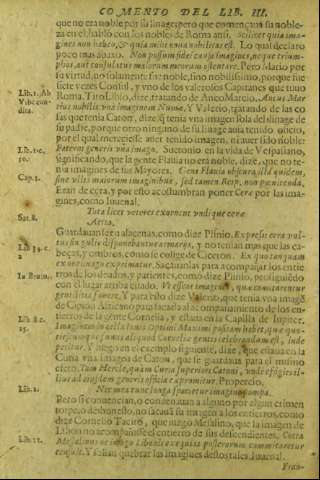 COMENTO DEL LIB. III.
que no era noble por su linage, pero que començaua su noble-
za en el, hablo con los nobles de Roma assi. Scilicet quia ima-
gines non habeo, & quia mihi noua nobilitas est. Lo qual declaro
poco mas abaxo. Non possum fidei causa imagines, neque trium-
phos, aut consulatus maiorum meorum ostentare. Pero Mario por
su virtud, no solamente fue noble, sino nobilissimo, porque fue
siete vezes Consul, y vno de los valerosos Capitanes que tuuo
Lib. 1. Ab Vrbe con- dita.
Roma. Tito Liuio, dize, tratando de Anco Marcio, Ancus Mar
cius nobilis vna imagine Numæ. Y Valerio, tratando de las co
sas que tenia Caton, dize, que tenia vna imagen sola del linage de
su padre, porque otro ninguno de su linage auia tenido oficio,
por el qual mereciesse auer tenido imagen, ni auer sido noble:
Lib. 10.
Paterni generis vna imago. Suetonio en la vida de Vespasiano,
significando, que la gente Flauia no era noble, dize, que no te-
Cap. 1.
nia imagines de sus Mayores. Gens Flauia obscura illa quidem,
sine vllis maiorum imaginibus, sed tamen Reip. non pœnitenda,
Eran de cera, y por esto acostumbran poner Cera por las ima-
gines, como Iuuenal.
Sat. 8.
Tota licet veteres exornent vndique ceræ
Atria,
Guardauanse en alacenas, como dize Plinio. Expressi cera vul-
Lib. 35. c. 2
tus singulis disponebantur armarijs, y no tenian mas que las ca-
beças, y ombros, como se colige de Ciceron. Ex quo tanquam
ex
imagines exprimatur. Sacauanlas para acompañar los entie
rros de los deudos, y parientes, como dize Plinio, prosiguiendo
con el lugar arriba citado. Vt essent imagines, quæ comitarentur
gentilitia funera. Y para esto dize Valerio, que tenia vna imagẽ
de Cipion Africano para sacarla al acompañamiento de los en-
tierros de la gente Cornelia, y estaua en la Capilla de Iupiter.
Lib. 8. c. 15.
Imaginem in cella Iouis Optimi Maximi positam habet, quæ quo-
tiescunque funus aliquod Corneliæ gentis celebrandum est, inde
petitur. Y luego en el exemplo siguiente, dize, que estaua en la
Curia vna imagen de Caton, que se guardaua para el mismo
efeto. Tam Hercle, quàm Curia superioris Catonis, vnde effigies il-
lius ad eiusdem generis officia expromitur. Propercio,
Lib. 2.
Nec mea tunc longa spatietur imagine pompa.
Pero si conuencian, o condenauan a alguno por algun crimen
torpe, o deshonesto, no sacauan su imagen a los entierros, como
dize Cornelio Tacito, que juzgò Messalino, que la imagen de
Libon no acompañasse el entierro de sus descendientes. Cotta
Lib. 11.
Messalinus ne imago Libonis exequias posterorum comitaretur
censuit. Y solian quebrar las imagines destos tales. Iuuenal.
Fran-